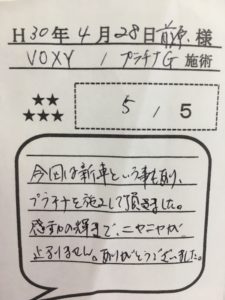 H30年4月28日前原様
VOXY / プラチナG 施術
★★
★★★
5 / 5
今回は新車という事もあり、
プラチナを施工して頂きました。
感動の輝きで、ニヤニヤが、
止まりません。ありがとうございました。